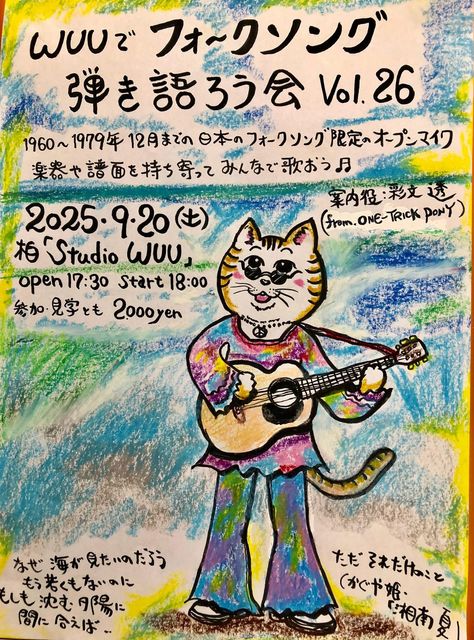 WUUでフォ〜クソング
弾き語ろう会 Vol.26
1960〜1979年12月までの日本のフォークソング限定のオープンマイク
楽器や譜面を持ち寄ってみんなで歌おう♫
案内役:彩文透
(from.ONE-TRICK PONY)
2025・9・20(土)
柏「Studio WUU」
open 17:30 start 18:00
参加・見学とも 2000yen
なぜ 海が見たいのだろう
もう若くもないのに
もしも沈む夕陽に
間に合えば‥
ただ それだけのこと
(かぐや姫・
「湘南 夏」